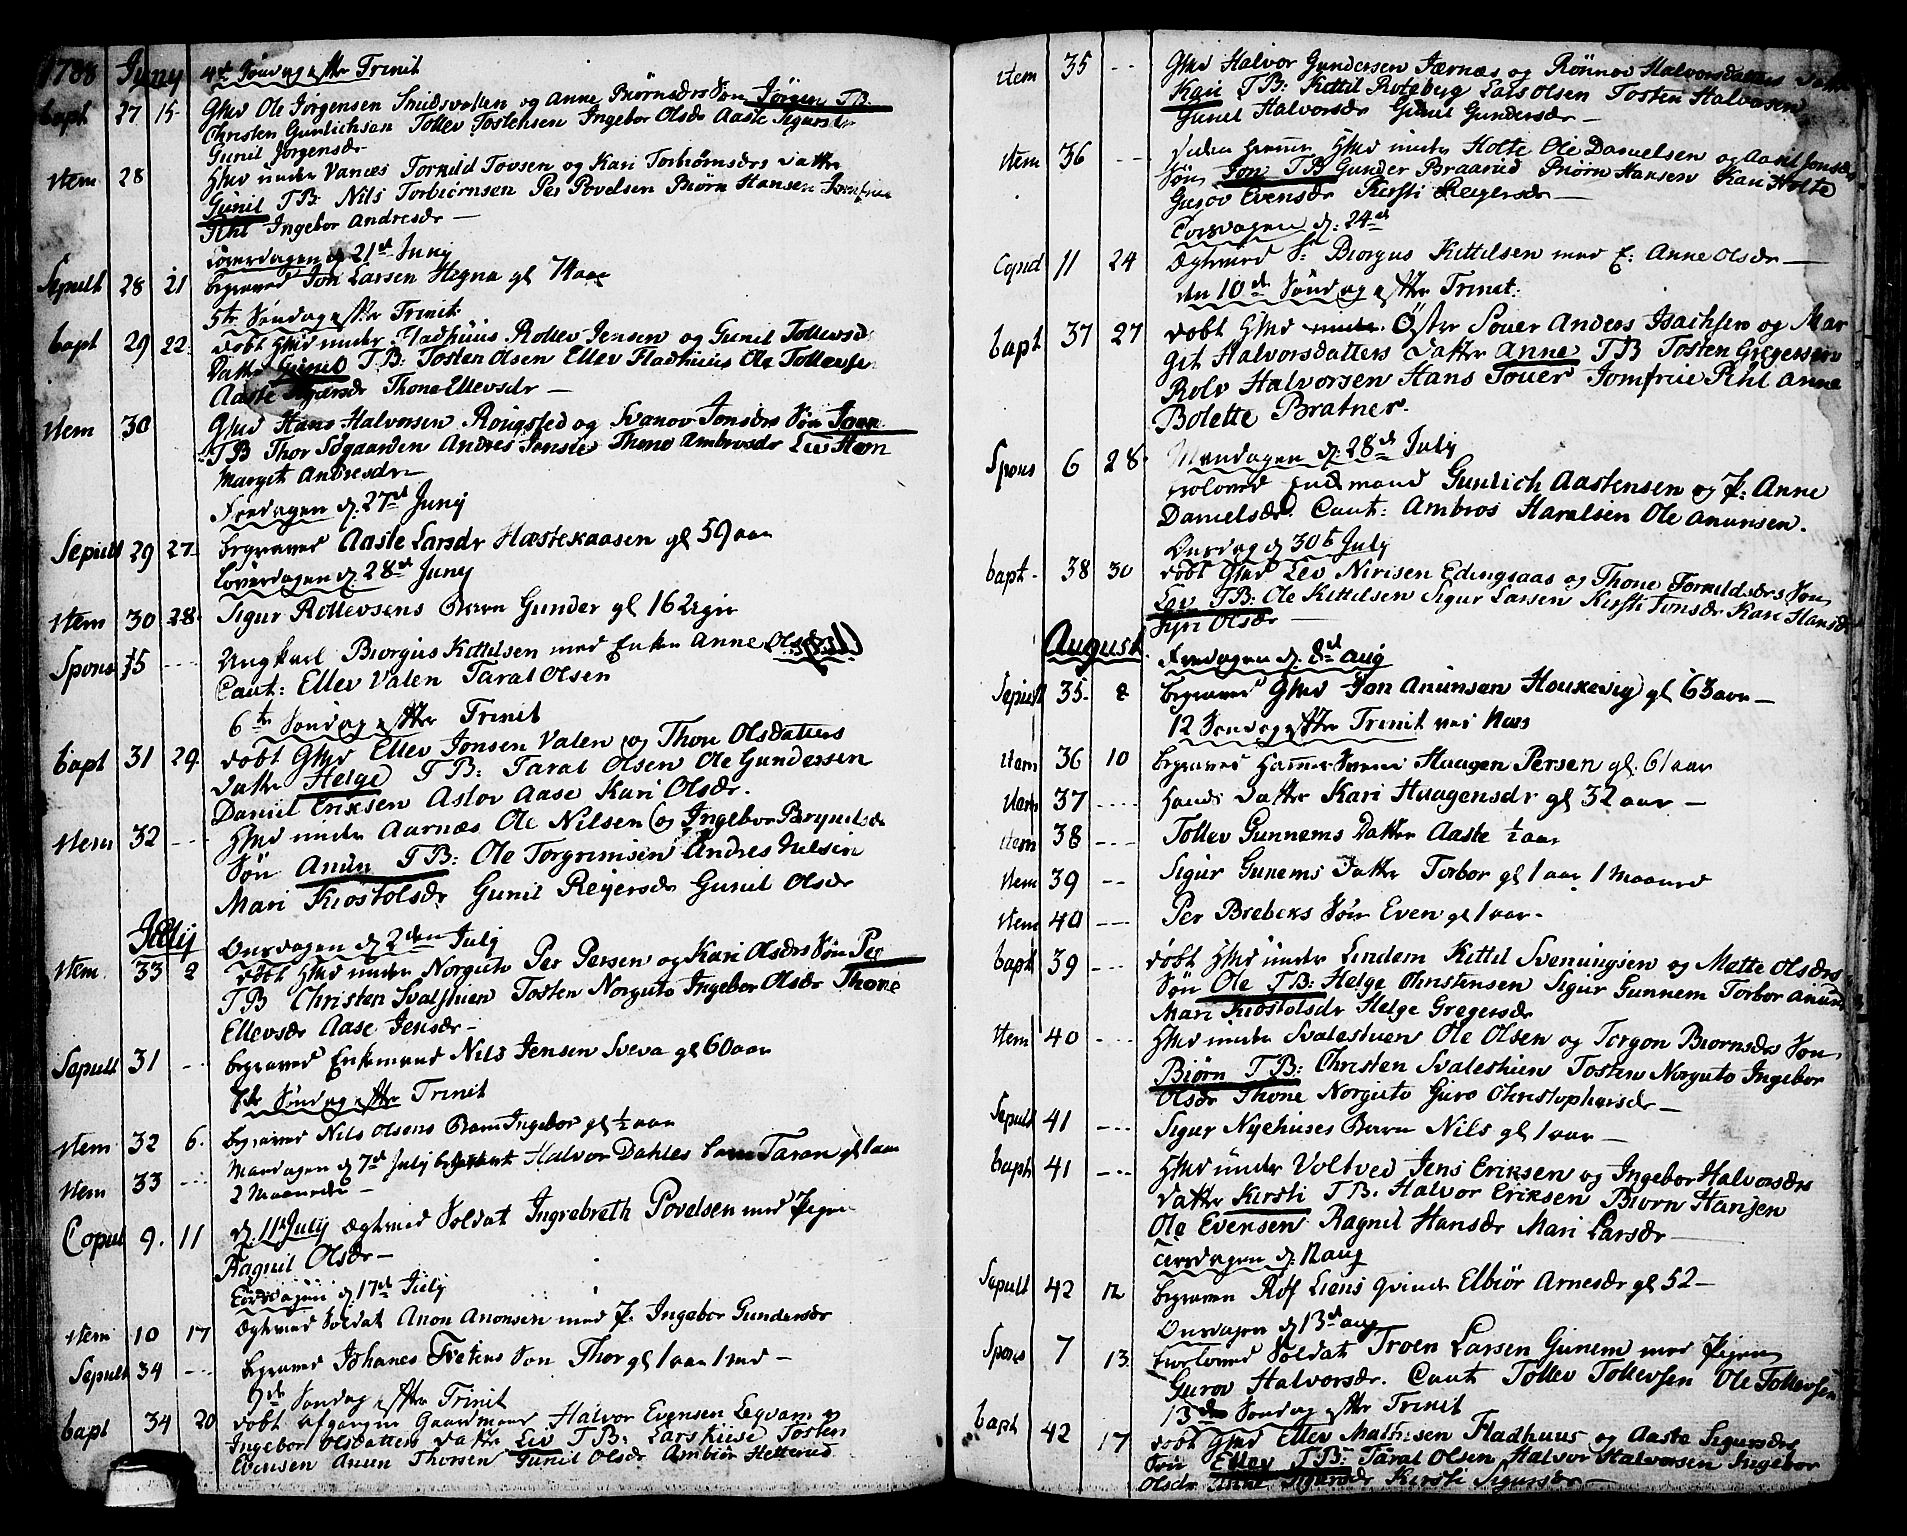 1788 Juny 4de Søndag efter Trinit
bapt 27 15 Ghd Ole Jørgensen Smidsvalen og Anne Biørnsdrs Søn Jørgen TB
Christen Gunlichsen Tollev Tostensen Ingebor Olsdr Aaste Sigursdr
Gunil Jørgensdr
Item 28 Hhd under Vances Tornild Tovsen og Kari Torbiørnsdrs Datter
Gunil TB: Nils Torbiørnsen Per Povelsen Biørn Hansen Jomfrue
Pihl Ingebor Andresdr
Løverdagen d 21de Juny
Sepult 28 21 begraved Jon Larsen Hegna gl 74 aar
5te Søndag efter Trinit:
bapt 29 22 døbt Hhd under Fladhuus Rollev Jensen og Gunil Tollevsdrs
Datter Gunil TB: Tosten Olsen Ellev Fladhuus Ole Tollevsen
Aaste Thone Ellevsdr
Item 30 Ghd Hans Halvorsen Rougsted og Svanov Jonsdrs Søn
TB Thor Søgaarden Andres Thone Ambrosdr Liv Hem
Margit Andresdr
Fredagen d. 27de Juny
Sepult 29 27 begraved Aaste Larsdr Hæstekaasen gl 59 aar
Løverdagen d. 28de Juny
Item 30 28 Sigur Rollevsens Barn Gunder gl 16 Uger
Spons 5 --- Ungkarl Biorgus Kittilsen med Enken Anne Olsdr
Caut: Ellev Valen Taral Olsen
6te Søndag efter Trinit
bapt 31 29 døbt Ghd Ellev Jonsen Valen og Thon Olsdatters
Datter Helge TB: Taral Olsen Ole Gundersen
Daniil Eriksen Aslov Aase Kari Olsdr.
Item 32 --- Hhd under Aarnæs Ole Nilsen og Ingebor Brynilsdr
Søn Anun TB: Ole Torgrimsen Andres Nilsen
Mari Kiostolsdr Gunil Reyersdr Gunil Olsdr
July Onsdagen d 2den July
Item 33 2 døbt Hhd under Norguto Per Persen og Kari Olsdrs Søn Per
TB Christen Svalstuen Tosten Norguto Ingebor Olsdr Thone
Ellevsdr Aase Jensdr
Sepult 31 --- begraved Enkemand Nils Jensen Sveva gl 60 aar
7de Søndag efter Trinit
Item 32 6 begraved Nils Olsens Barn Ingebor gl ½ aar
Item 33 --- Mandagen d 7de July begravet Halvor Dahles barn Taran gl 1 aar
2 Maaneder
Copul 9. 11 d. 11 July Ægtvied Soldat Ingebreth Povelsen med Pigen
Ragnil Olsdr
Torsdagen d 17de July
Item 10 17 Ægtvied Soldat Anon Anonsen med P. Ingebor Gundersdr
Sepult 34 --- begraved Johanes Tretens Søn Thor gl 1 aar 1 md
9de Søndag efter Trinit
bapt 34 20 døbt afgangne Gaardmand Halvor Evensen Legvam og
Ingebor Olsdatters Datter Liv TB: Lars Tosten
Evensen Anun Thorsen Gunil Olsdr Ambiør Hetterud
Item 35 --- Ghd Halvor Gundersen Jærnæs og Rønnov Halvorsdatters Datter
Kari TB: Kittil Rotebyg Lars Olsen Tosten Halvorsen
Gunil Halvorsdr Gunil Gundersdr
Item 36 --- Hhd under Holte Ole Danielsen og Aasil Jonsdr
Søn Jon TB Gunder Braarud Biørn Hansen Kari Holte
Gurov Evensdr Kirsti Reyersdr
Torsdagen d. 24de
Copul 11 24 Ægtvied S: Biorgus Kittilsen med E: Anne Olsdr
den 10de Søndag efter Trinit:
bapt 37 27 døbt Ghd Øster Souer Anders Isachsen og Mar
git Halvorsdatters Datter Anne TB Tosten Gregersen
Rolv Halvorsen Hans Souer Jomfrue Pihl Anne
Bolette Bratner.
Mandagen d: 28de July
Spons 6 28 trolovet Enkemand Gunlich Aastensen og P: Anne
Danielsdr Caut: Ambros Haralsen Ole Anunsen.
Onsdag d 30te July
bapt 38 30 døbt Ghd Liv Nirisen Edingsaas og Thone Tornildsdrs Søn
Liv TB: Ole Kittilsen Sigur Larsen Kirsti Jonsdr Kari Hansdr
Syri Olsdr
August Fredagen d. 8de Aug
Sepult 35 8 begraved Ghd Jon Anunsen Houkevig gl 63 aar
12 Søndag efter Trinit ved Næs
Item 36 10 begraved Haagen Persen gl. 61 aar
Item 37 --- hands Datter Kari Haagensdr gl 32 aar
Item 38 --- Tollev Gunnems Datter Aaste ½ aar
Item 39 -- Sigur Gunems Datter Torbor gl 1 aar 1 Maaned
Item 40 --- Per Brebeks Søn Even gl 1 aar
bapt 39 --- døbt Hhd under Lindem Kittil Sveningsen og Mette Olsdrs
Søn Ole TB: Helge Christensen Sigur Gunnem Torbor Anun
Mari Kiostolsdr Helge Gregersdr
Item 40 --- Hhd under Svalestuen Ole Olsen og Torgon Biornsdrs Søn
Biørn TB: Christen Svalestuen Tosten Norguto Ingebor
Olsdr Thone Norguto Guro Christophersdr
Sepult 41 --- Sigur Nyehuses Barn Nils gl 1 aar
bapt 41 --- Hhd under Voltved Jens Eriksen og Ingebor Halvorsdrs
Datter Kirsti TB. Halvor Eriksen Biorn Hansen
Ole Evensen Ragnil Hansdr Mari Larsdr
Tirsdagen d. 12 aug
Sepult 42 12 begraven Rolf Liens Qvinde Elbiør Arnesdr gl 52
Onsdagen d 13de aug
Spons 7 13 trolovet Soldat Troen Larsen Gunem med Pigen
Gurov Halvorsdr. Caut Tollev Tollevsen Ole Tollevsen
13de Søndag efter Trinit
bapt 42 17 døbt Ghd Ellev Mathisen Fladhuus og Aaste Sigursdrs
Søn Ellev TB: Taral Olsen Halvor Halvorsen Ingebor
Olsdr Anne Sigursdr Kirsti Sigursdr